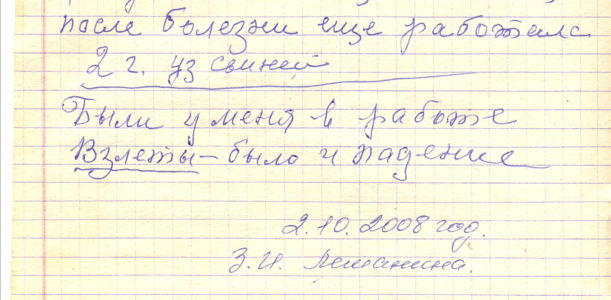 после болезни еще работала
2 г. уз свиней
Были у меня в работе
Взлеты – было и падение
2.10.2008 год.
З.И.